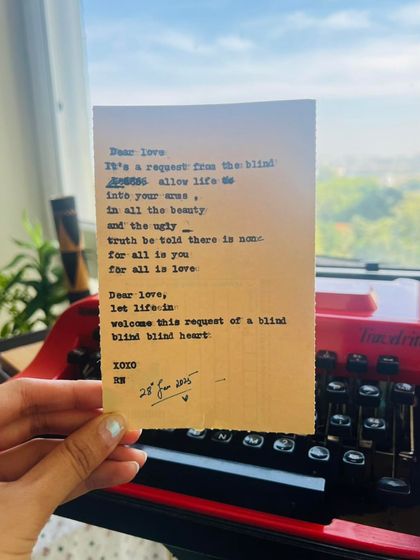 Dear love
It's a request from the blind
allow life
into your arms ,
in all the beauty
and the ugly _
truth be told there is none
for all is you
for all is love
Dear love,
let life in
welcome this request of a blind
blind blind heart
XOXO
RW
28 Jan 2025